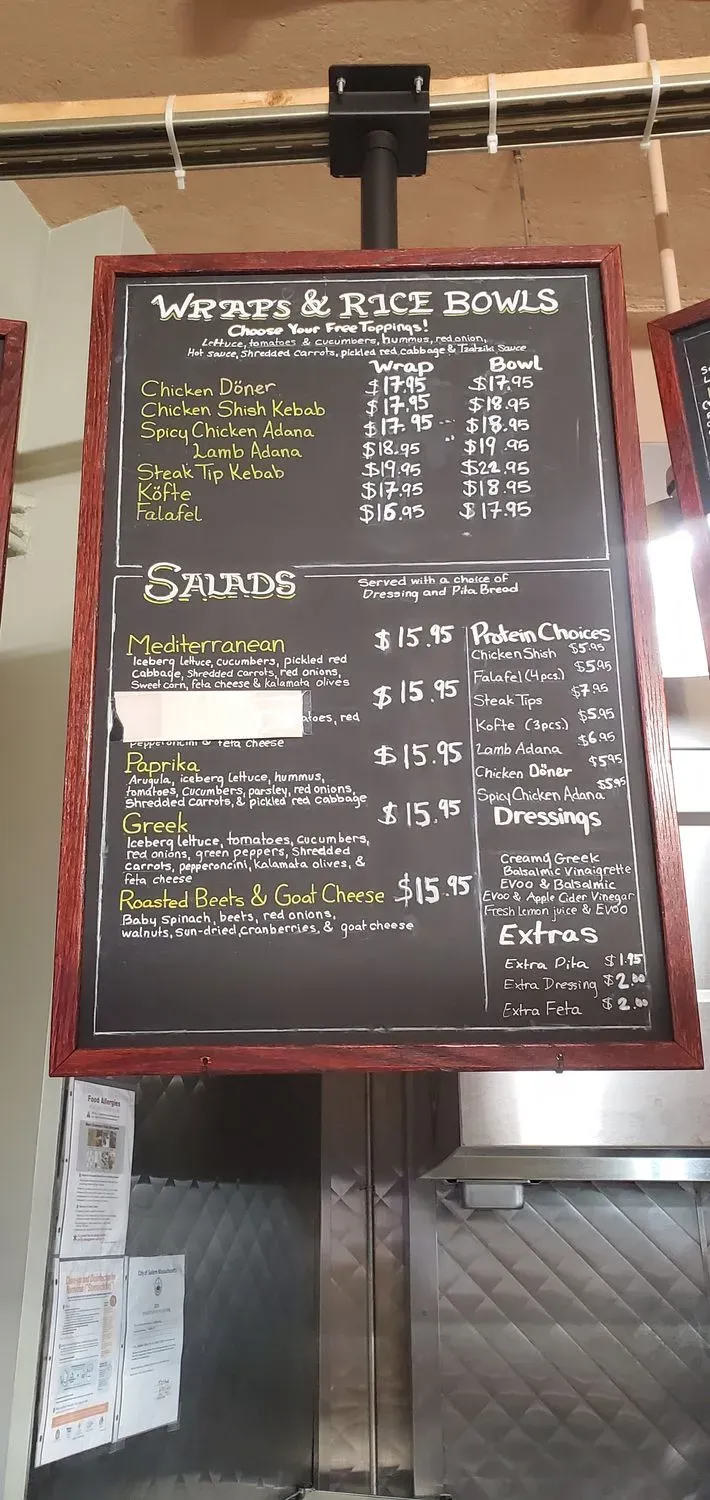 WRAPS & RICE BOWLS
Choose Your Free Toppings!
Lettuce, tomatoes & cucumbers, hummus, red onion,
Hot sauce, Shredded Carrots, pickled red cabbage & Tzatziki Sauce
Wrap Bowl
Chicken Döner $17.95 $17.95
Chicken Shish Kebab $17.95 $18.95
Spicy Chicken Adana $17.95 $18.95
Lamb Adana $18.95 $19.95
Steak Tip Kebab $19.95 $22.95
Köfte $17.95 $18.95
Falafel $16.95 $17.95
SALADS
Served with a choice of
Dressing and Pita Bread
Mediterranean $15.95
Iceberg lettuce, cucumbers, pickled red
Cabbage, Shredded carrots, red onions,
Sweet corn, feta cheese & kalamata olives
$15.95
atoes, red
Pepperoncini & feta cheese
Paprika $15.95
Arugula, iceberg lettuce, hummus,
tomatoes, Cucumbers, parsley, red onions,
Shredded carrots, & pickled red cabbage
Greek $15.95
Iceberg lettuce, tomatoes, cucumbers,
red onions, green peppers, Shredded
carrots, pepperoncini, kalamata olives, &
feta cheese
Roasted Beets & Goat Cheese $15.95
Baby Spinach, beets, red onions,
walnuts, sun-dried, cranberries, & goat cheese
Protein Choices
Chicken Shish $5.95
Falafel (4 pcs.) $5.95
Steak Tips $7.95
Kofte (3pcs.) $5.95
Lamb Adana $6.95
Chicken Döner $5.95
Spicy Chicken Adana $5.95
Dressings
Creamy Greek
Balsalmic Vinaigrette
EVOO & Balsalmic
Evoo & Apple Cider Vinegar
Fresh Lemon juice & EVOO
Extras
Extra Pita $1.95
Extra Dressing $2.00
Extra Feta $2.00
Food Allergies
City of Salem Massachusetts